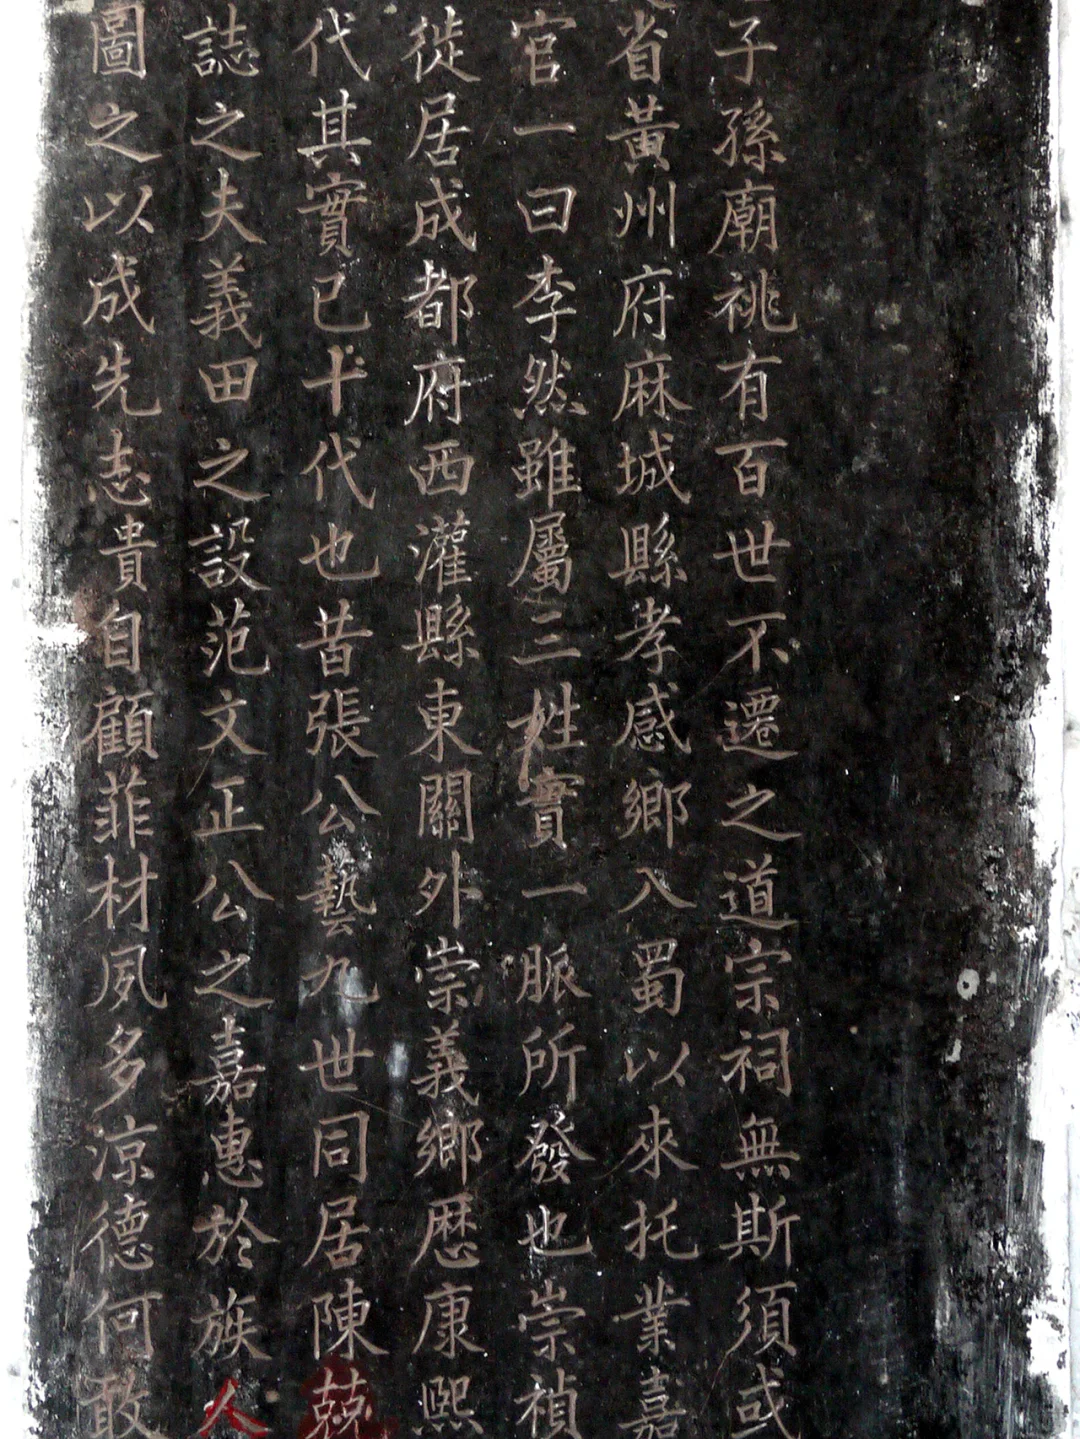 子孫廟祧有百世不遷之道宗祠無斯須或
省黃州府麻城縣孝感鄉入蜀以來托業嘉
官一曰李然雖屬三姓實一脈所發也崇禎
徙居成都府西灌縣東關外崇義鄉歷康熙
代其實已十代也昔張公藝九世同居陳兢
誌之夫義田之設范文正公之嘉惠於族人
圖之以成先志貴自顧菲材夙多涼德何敢